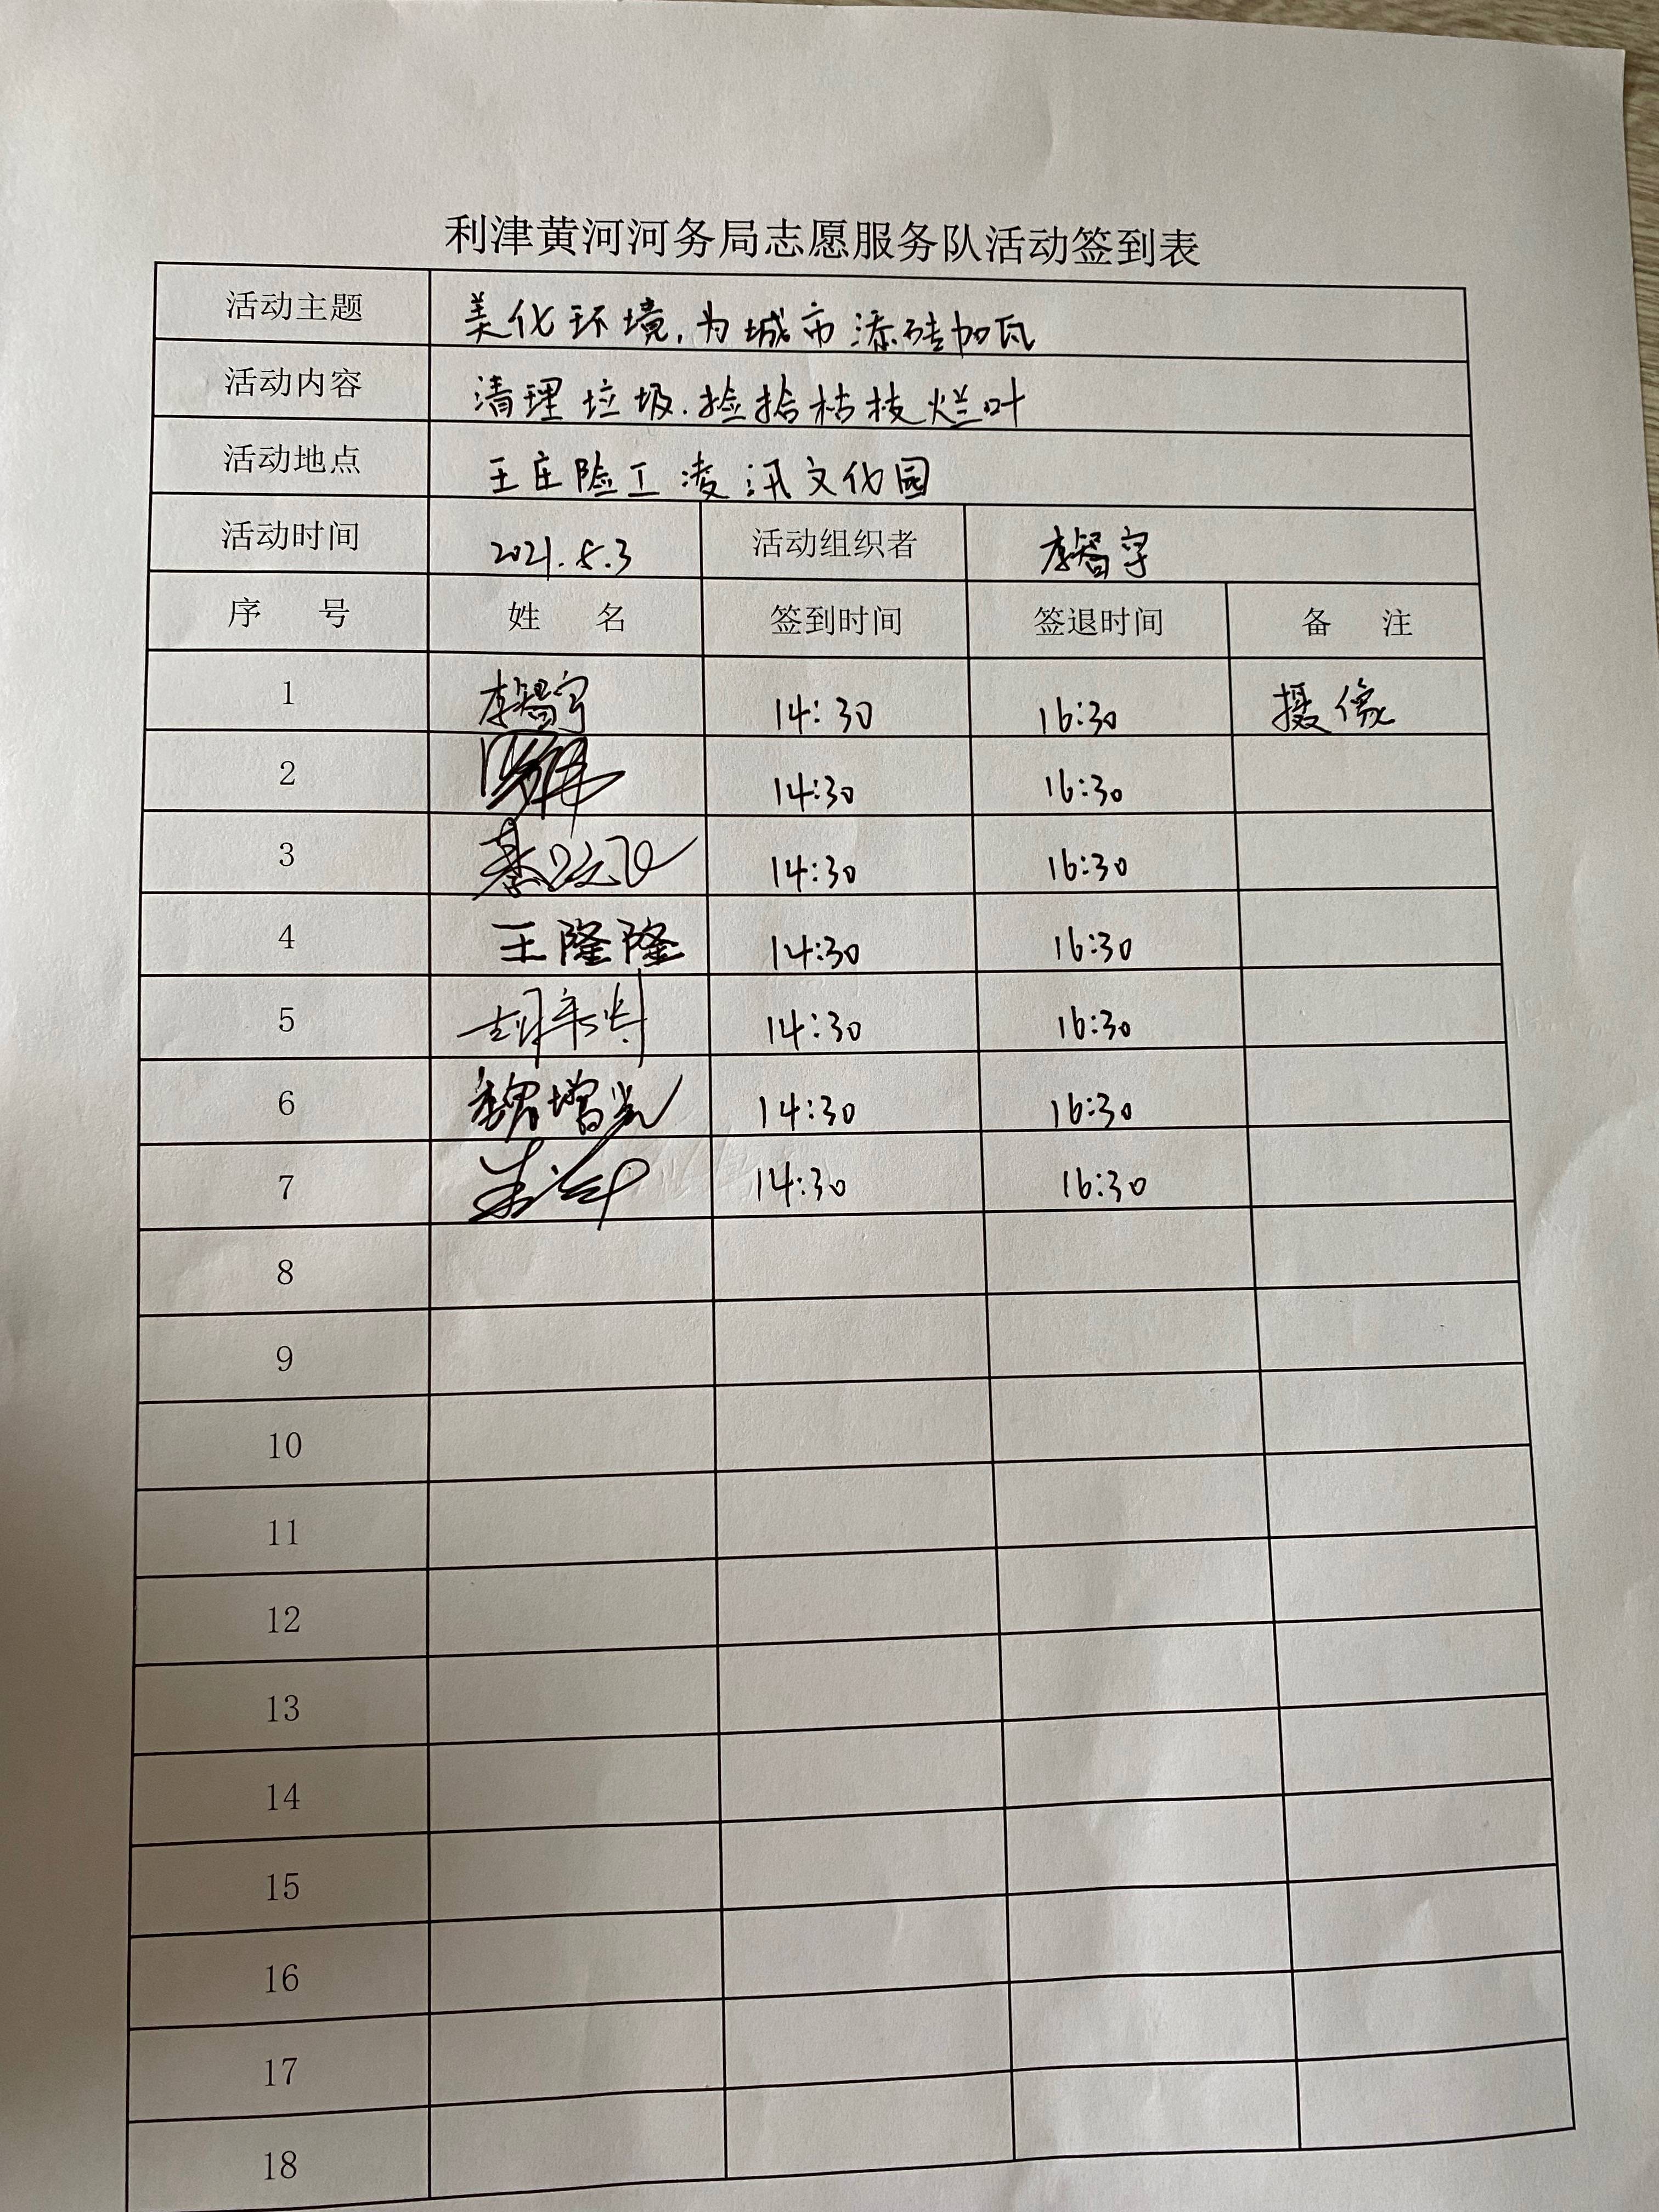 利津黄河河务局志愿服务队活动签到表
活动主题 美化环境,为城市添砖加瓦
活动内容 清理垃圾.捡拾枯枝烂叶
活动地点 王庄险工凌汛文化园
活动时间 2021.5.3 活动组织者 李智宇
序 号 姓 名 签到时间 签退时间 备 注
1 李智宇 14:30 16:30 摄像
2 14:30 16:30
3 14:30 16:30
4 王隆隆 14:30 16:30
5 14:30 16:30
6 魏增光 14:30 16:30
7 14:30 16:30
8
9
10
11
12
13
14
15
16
17
18